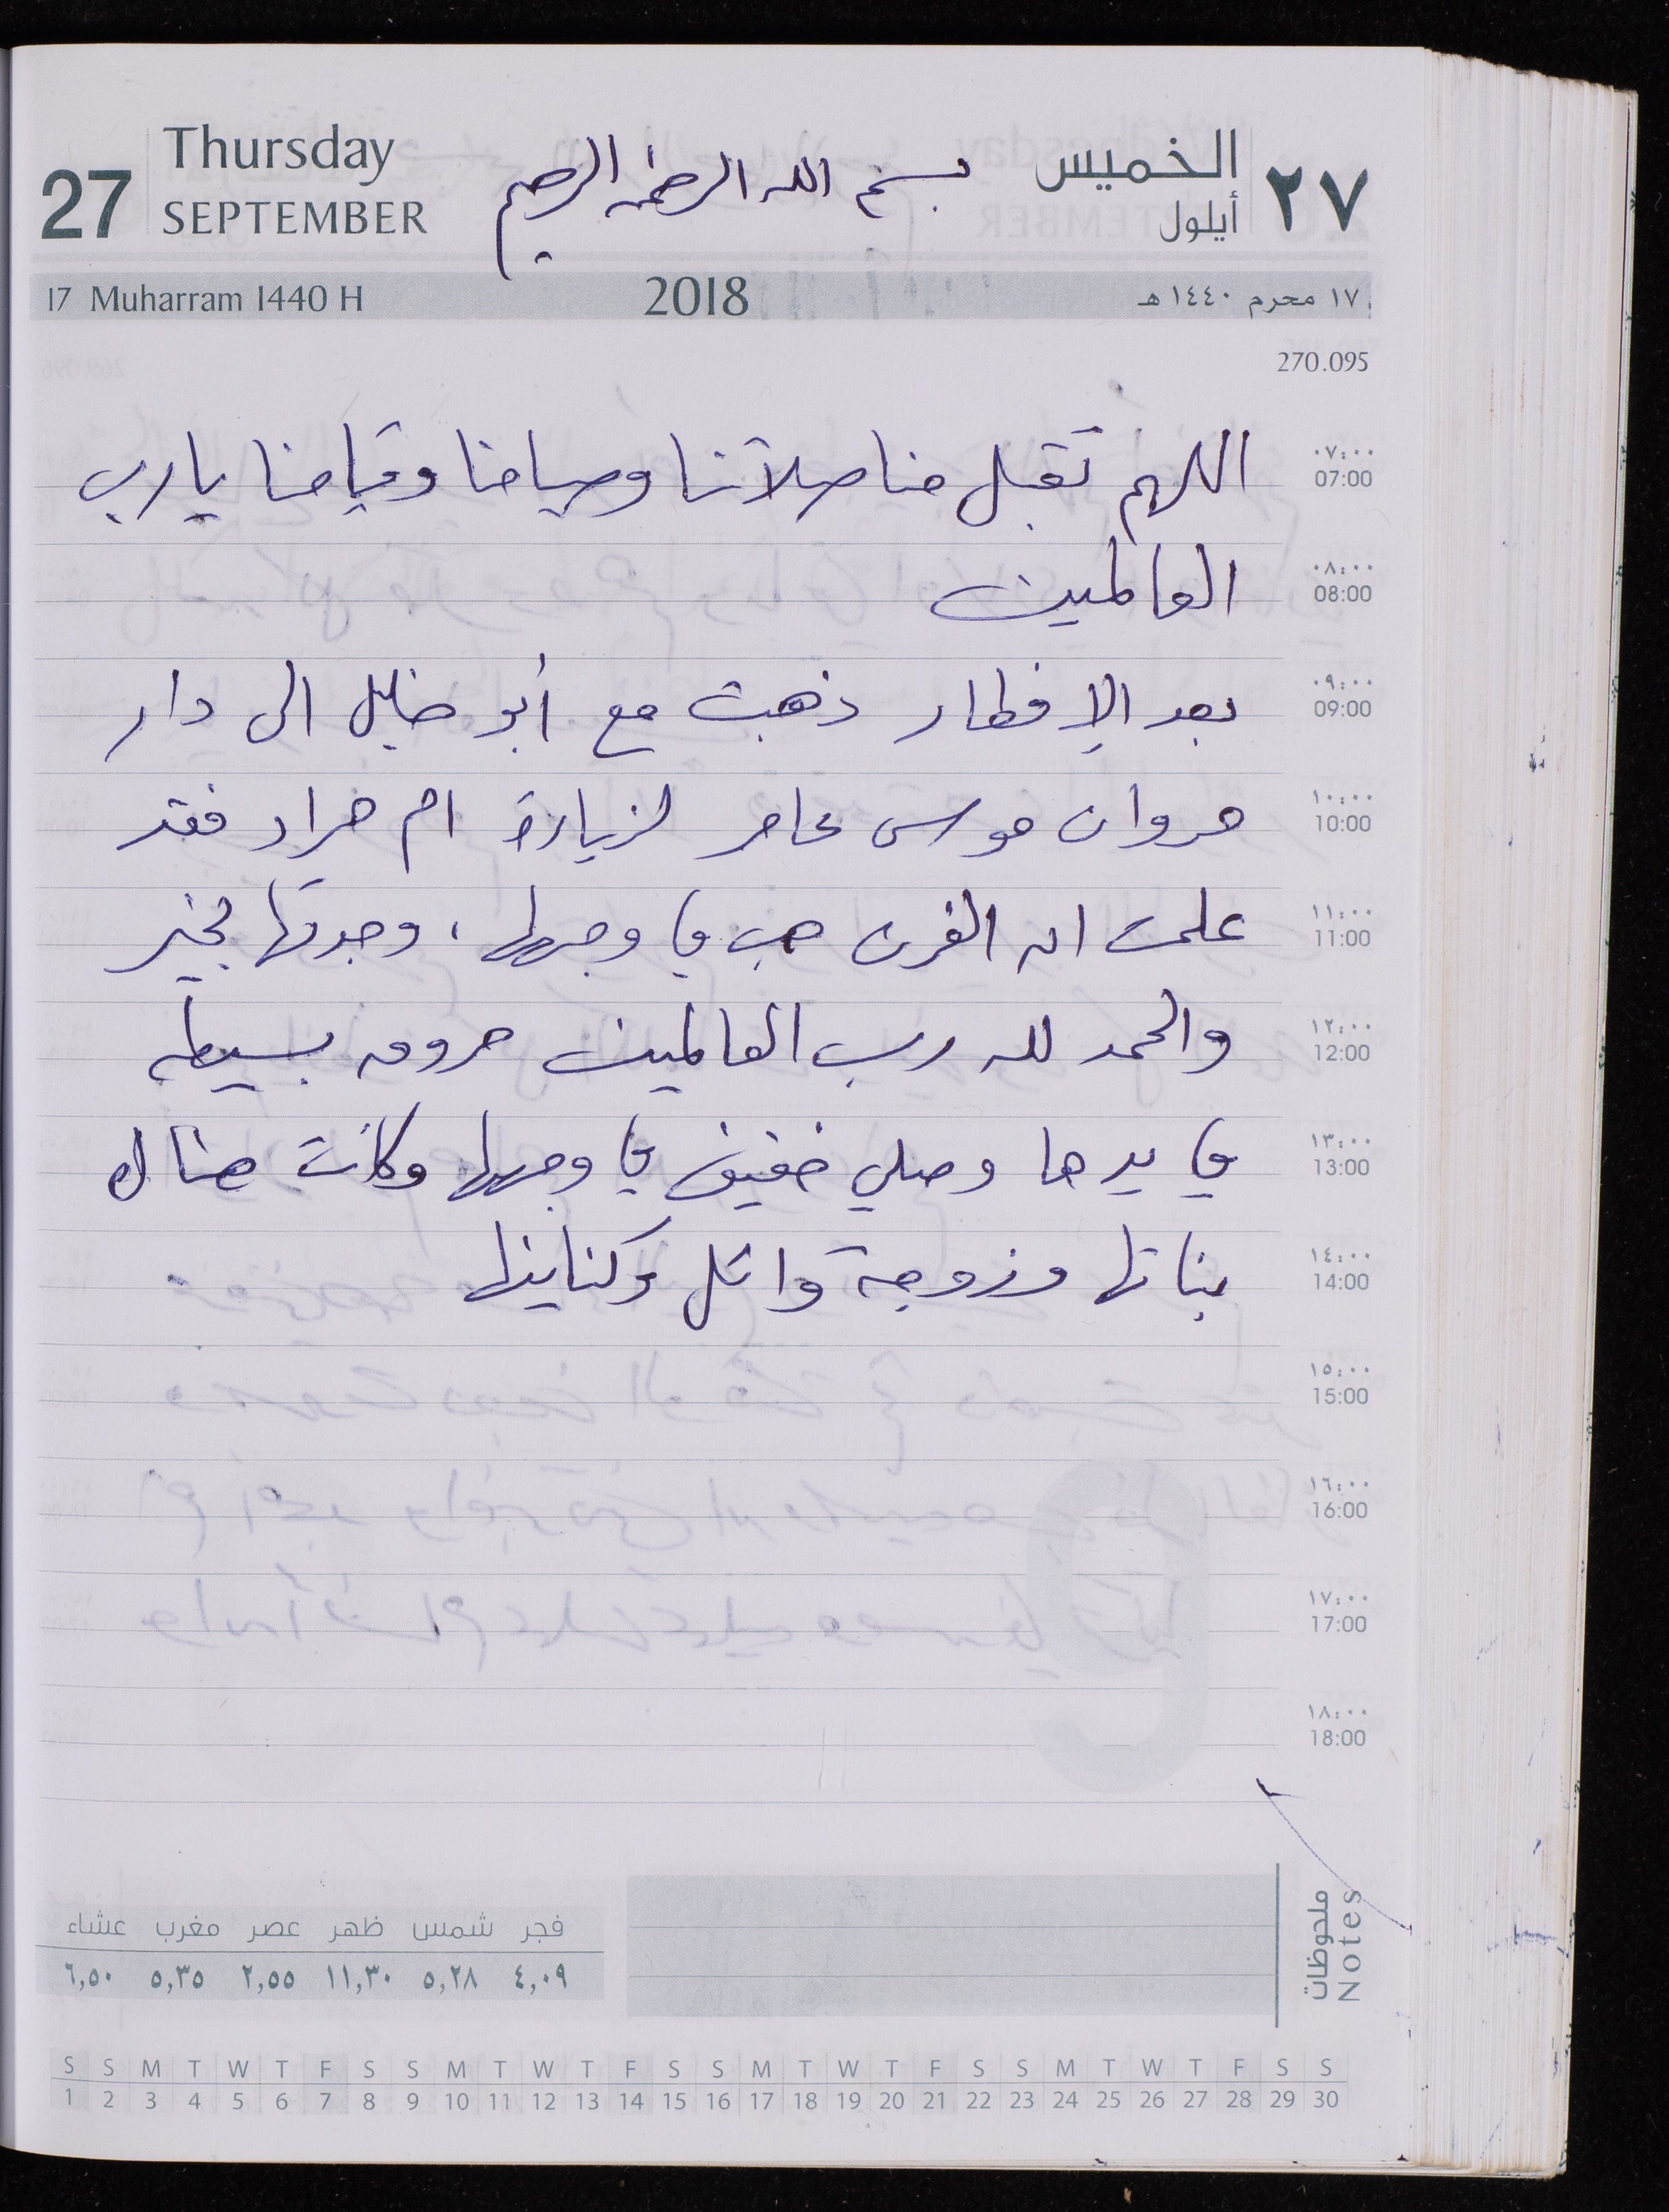 27
Thursday
SEPTEMBER
بسم الله الرحمن الرحيم
الخميس
أيلول
٢٧
17 Muharram 1440 H
2018
١٧ محرم ١٤٤٠ هـ
270.095
٠٧:٠٠
07:00
اللهم تقبل منا صلاتنا وصيامنا وقيامنا يا رب
٠٨:٠٠
08:00
العالمين
٠٩:٠٠
09:00
بعد الإفطار ذهبت مع أبو خليل الى دار
١٠:٠٠
10:00
مروان موسى عامر لزيارة ام مراد فقد
١١:٠٠
11:00
علمت ان الفرن هب في وجهها، وجدتها بخير
١٢:٠٠
12:00
والحمد لله رب العالمين حروق بسيطه
١٣:٠٠
13:00
في يدها و خفيف في وجهها وكانت هناك
١٤:٠٠
14:00
بناتها وزوجة وائل وكناينها
١٥:٠٠
15:00
١٦:٠٠
16:00
١٧:٠٠
17:00
١٨:٠٠
18:00
ملحوظات
Notes
فجر شمس ظهر عصر مغرب عشاء
٤,٠٩ ٥,٢٨ ١١,٣٠ ٢,٥٥ ٥,٣٥ ٦,٥٠
S S M T W T F S S M T W T F S S M T W T F S S M T W T F S S
1 2 3 4 5 6 7 8 9 10 11 12 13 14 15 16 17 18 19 20 21 22 23 24 25 26 27 28 29 30